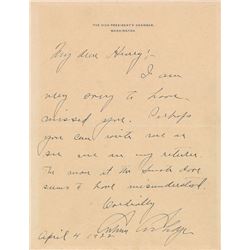 THE VICE PRESIDENT'S CHAMBER
WASHINGTON
My dear Henry:-
I am
very sorry to have
missed you. Perhaps
you can with me
see me on my return.
The man at the Senate door
seems to have misunderstood.
Cordially
Calvin Coolidge
April 4